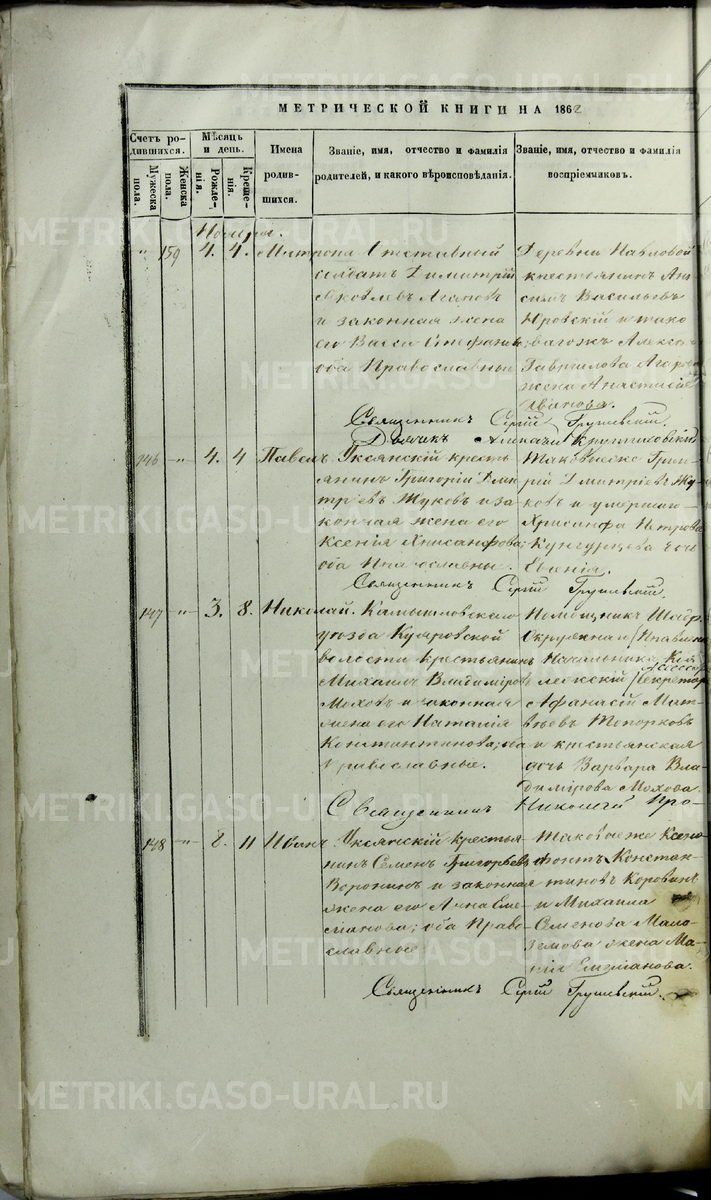 МЕТРИЧЕСКОЙ КНИГИ НА 1862
Счетъ ро-
дившихся.
Мужеска
пола.
Женска
пола.
Мѣсяцъ
и день.
Рожде-
нія.
Креще-
нія.
Имена
родив-
шихся.
Званіе, имя, отчество и фамилія
родителей, и какого вѣроисповѣданія.
Званіе, имя, отчество и фамилія
воспріемниковъ.
Ноября.
" 159 4. 4. Матрона
Отставный
солдатъ Димитрій
Яковлевъ Агаповъ
и законная жена
его Васса Стефанова
оба Православны
Деревни Павловой
крестьянинъ
Васильевъ
Юровскій и тако
Гавриловъ
жена Анастасія
Иванова.
Священникъ Сергій Грушевскій.
Дьячекъ
146 " 4. 4 Павелъ
Уксянскій кресть
янинъ Григорій Дми
тріевъ Жуковъ и за
конная жена его
Ксенія Хрисанфова;
оба Православны.
Таковыеже Григо
рій Дмитріевъ Жу
ковъ и умершаго
Хрисанфа Петрова
Кунгурцева дочь
Евгенія.
Священникъ Сергій Грушевскій.
147 " 3. 8. Николай.
Камышловскаго
уѣзда Куяровской
волости крестьянинъ
Михаилъ Владиміровъ
Моховъ и законная
жена его Наталія
Константинова; оба
Православные.
Помощникъ Шадр.
Окружнаго
Начальника Кол
лежскій Секретарь
Афанасій Мат
вѣевъ Топорковъ
и крестьянская
дочь Варвара Вла
димірова Мохова.
Священникъ Николай Про-
148 " 8. 11 Иванъ
Уксянскій крестья
нинъ Семенъ Григорьевъ
Воронинъ и законная
жена его Анна Еме
ліанова; оба Право-
славные
Таковыеже Ксено
фонтъ Констан
тиновъ Коровинъ
и Михаила
Семенова Мало
земова жена Ма
рія Емеліанова.
Священникъ Сергій Грушевскій.
METRIKI.GASO-URAL.RU